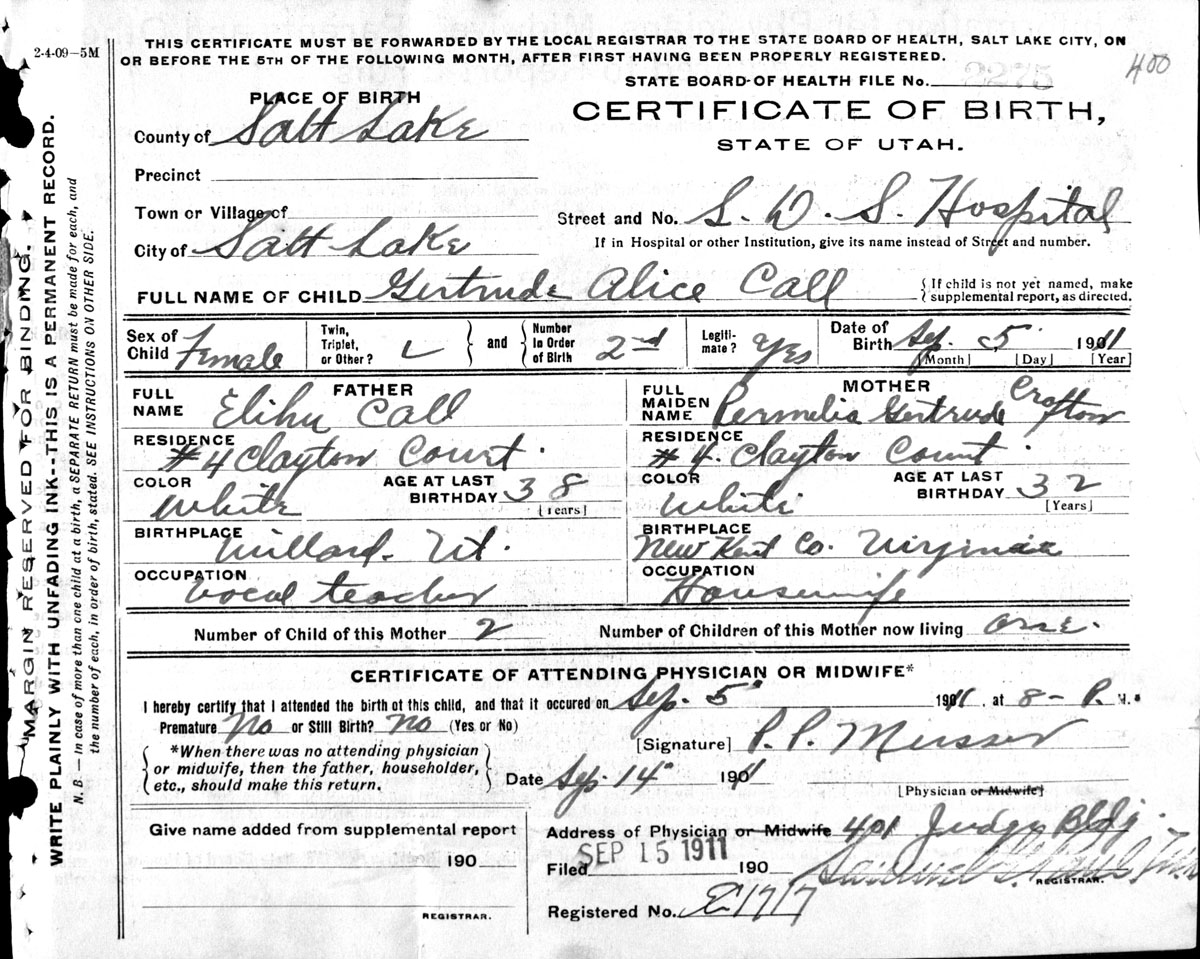 2-4-09-5M
THIS CERTIFICATE MUST BE FORWARDED BY THE LOCAL REGISTRAR TO THE STATE BOARD OF HEALTH, SALT LAKE CITY, ON
OR BEFORE THE 5TH OF THE FOLLOWING MONTH, AFTER FIRST HAVING BEEN PROPERLY REGISTERED.
400
STATE BOARD OF HEALTH FILE No. 2275
PLACE OF BIRTH
CERTIFICATE OF BIRTH,
STATE OF UTAH.
County of Salt Lake
Precinct
Town or Village of
Street and No. L. D. S. Hospital
City of Salt Lake
If in Hospital or other Institution, give its name instead of Street and number.
FULL NAME OF CHILD Gertrude Alice Call
{ If child is not yet named, make
supplemental report, as directed.
Sex of Child Female
Twin, Triplet, or Other?
and
Number in Order of Birth 2nd
Legitimate? Yes
Date of Birth Sep. 5 1911
[Month] [Day] [Year]
FATHER
FULL NAME Elihu Call
RESIDENCE #4 Clayton Court.
COLOR White
AGE AT LAST BIRTHDAY 38 [Years]
BIRTHPLACE Willard. Ut.
OCCUPATION Vocal teacher
MOTHER
FULL MAIDEN NAME Permelia Gertrude Crafton
RESIDENCE #4. Clayton Court.
COLOR White
AGE AT LAST BIRTHDAY 32 [Years]
BIRTHPLACE New Kent Co. Virginia
OCCUPATION Housewife
Number of Child of this Mother 2
Number of Children of this Mother now living one.
CERTIFICATE OF ATTENDING PHYSICIAN OR MIDWIFE*
I hereby certify that I attended the birth of this child, and that it occured on Sep. 5" 1911, at 8- P. M.
Premature No or Still Birth? No (Yes or No)
*When there was no attending physician
or midwife, then the father, householder,
etc., should make this return.
[Signature] P. P. Musser
Date Sep. 14" 1911
[Physician or Midwife]
Give name added from supplemental report
190
REGISTRAR.
Address of Physician or Midwife 401 Judge Bldg.
Filed SEP 15 1911 190
REGISTRAR.
Registered No. E1717
MARGIN RESERVED FOR BINDING.
WRITE PLAINLY WITH UNFADING INK--THIS IS A PERMANENT RECORD.
N. B. — In case of more than one child at a birth, a SEPARATE RETURN must be made for each, and
the number of each, in order of birth, stated. SEE INSTRUCTIONS ON OTHER SIDE.